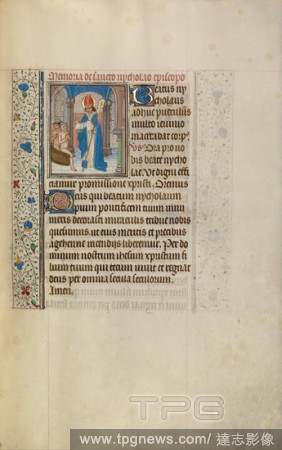 Memoria de sancto nycholao episcopo
Beatus ny
cholaus
adhuc puerulus
multo ieiunio
macerabat corp'
vs Ora pro no
bis beate nycho
lae Ut digni effi
ciamur promissione xpristi Oremus
Deus qui beatum nycholaum
pium pontificem tuum innu
meris decorasti miraculis tribue nobis
quesumus ut eius meritis et precibus
a gehenne incendijs liberemur Per do
minum nostrum ihesum xpristum fi
lium tuum qui tecum vivit et regnat
deus per omnia secula seculorum
Amen
TPG
www.tpgnews.com/ 達志影像